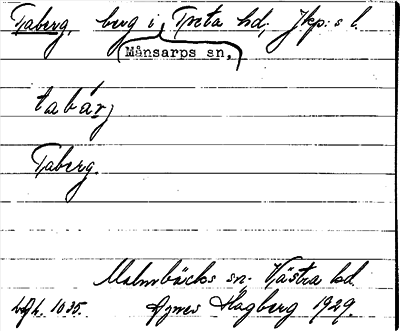 Taberg, berg i Tveta hd, Jkp:s l.
Månsarps sn,
tabárj
Taberg.
Malmbäcks sn. Västra hd.
Agnes Hagberg 1929.